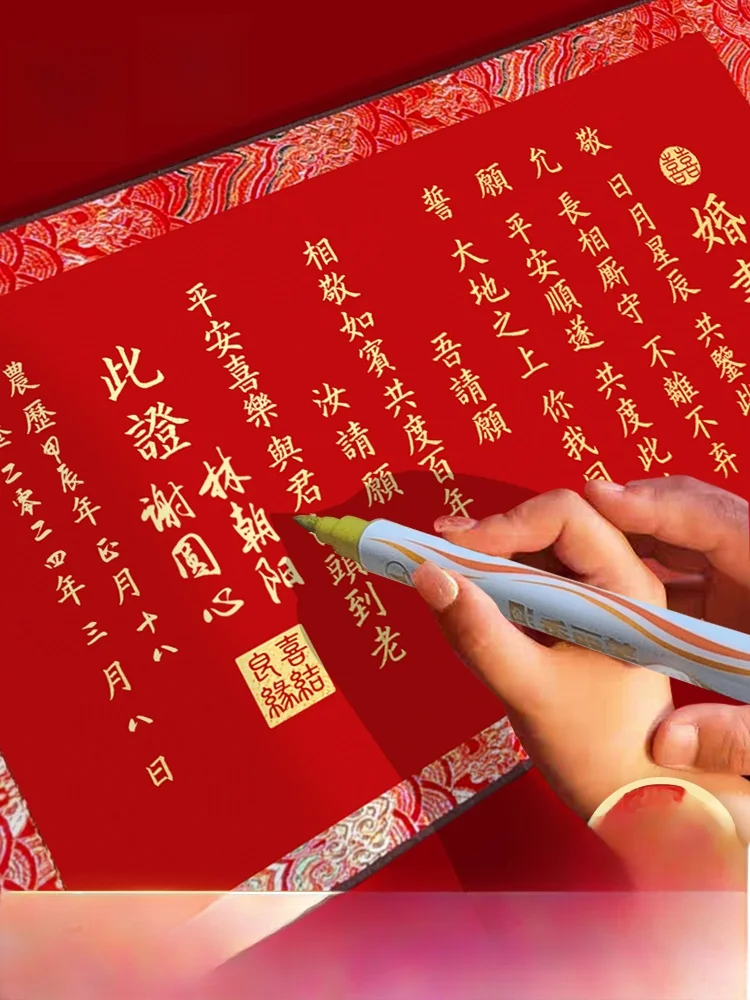 囍
婚
敬 日月星辰 共鑒此
允 長相厮守 不離不弃
願 平安順遂 共度此
誓 大地之上 你我同
吾請願
相敬如賓共度百年
汝請願
平安喜樂與君 頭到老
林朝阳
此證 謝圆心
喜結良緣
農歷甲辰年正月十八
二零二四年三月八日